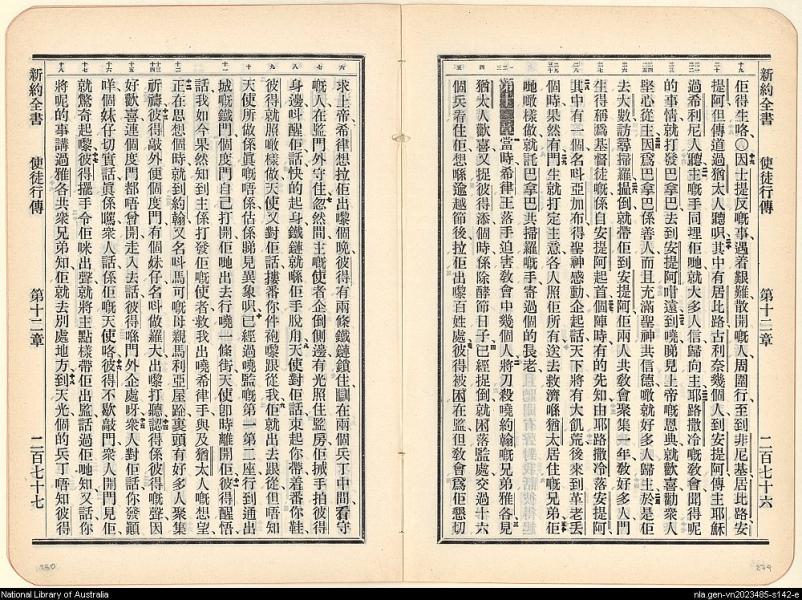 新約全書 使徒行傳 第十二章 二百七十六
十九 二十 二十一 二十二 二十三 二十四 二十五 二十六 二十七 二十八 二十九 三十 一 二 三 四 五
佢得生咯〇因士提反嘅事遇着艱難散開嘅人周圍行至到非尼基居比路安
提阿但傳道過猶太人聽啫其中有居比路古利奈幾個人到安提阿傳主耶穌
過希利尼人聽主嘅手同埋佢哋就大多人信歸向主耶路撒冷嘅敎會聞得呢
的事情就打發巴拿巴去到安提阿咁遠到嘵睇見上帝嘅恩典就歡喜勸衆人
堅心從主因爲巴拿巴係善人而且充滿聖神共信德噉就好多人歸主於是佢
去大數訪尋掃羅搵倒就帶佢到安提阿佢兩人共敎會聚集一年敎好多人門
生得稱爲基督徒嘅係自安提阿起首個陣時有的先知由耶路撒冷落安提阿
其中有一個名叫亞加布得聖神感動企起話天下將有大飢荒後來到革老丟
個時果然有門生就打定主意各人照佢所有送去救濟喺猶太居住嘅兄弟佢
哋噉樣做就託巴拿巴共掃羅嘅手寄過個的長老
第十二章 當時希律王落手迫害敎會中幾個人將刀殺嘵約翰嘅兄弟雅各見
猶太人歡喜又捉彼得添個時係除酵節日子已經捉倒就困落監處交過十六
個兵看住佢想喺逾越節後拉佢出嚟百姓處彼得被困在監但敎會爲佢懇切
六 七 八 九 十 十一 十二 十三 十四 十五 十六 十七 十八
求上帝希律想拉佢出嚟個晚彼得有兩條鐵鏈鎖住瞓在兩個兵丁中間看守
嘅人在監門外守住忽然間主嘅使者企倒側邊有光照住監房佢搣手拍彼得
身邊呌醒佢話快的起身鐵鏈就喺佢手脫甩天使對佢話束起你帶着番你鞋
彼得就照噉樣做天使又對佢話摟番你件袍嚟跟從我佢就出去跟從但唔知
天使所做係眞嘅唔係估係睇見異象啫已經過嘵監嘅第一第二座行到通出
城嘅鐵門個度門自己打開佢哋出去行嘵一條街天使卽時離開佢彼得醒悟
話我如今果然知到主係打發佢嘅使者救我出嘵希律手與及猶太人嘅想望
正在思想個時就到約翰又名叫馬可嘅母親馬利亞屋踎裏頭有好多人聚集
祈禱彼得敲外便個度門有個妹仔名叫做羅大出嚟打聽認得係彼得嘅聲因
好歡喜連個度門都唔曾開走入去話彼得喺門外企處呀衆人對佢話你發顚
咩個妹仔切實話眞係囉衆人話係佢嘅天使咯彼得不歇敲門衆人開門見佢
就驚奇起嚟彼得擺手令佢咪出聲就將主點樣帶佢出監話過佢哋知又話你
將呢的事講過雅各共衆兄弟知佢就去別處地方到天光個的兵丁唔知彼得
新約全書 使徒行傳 第十二章 二百七十七
280
279
National Library of Australia
nla.gen-vn2023485-s142-e